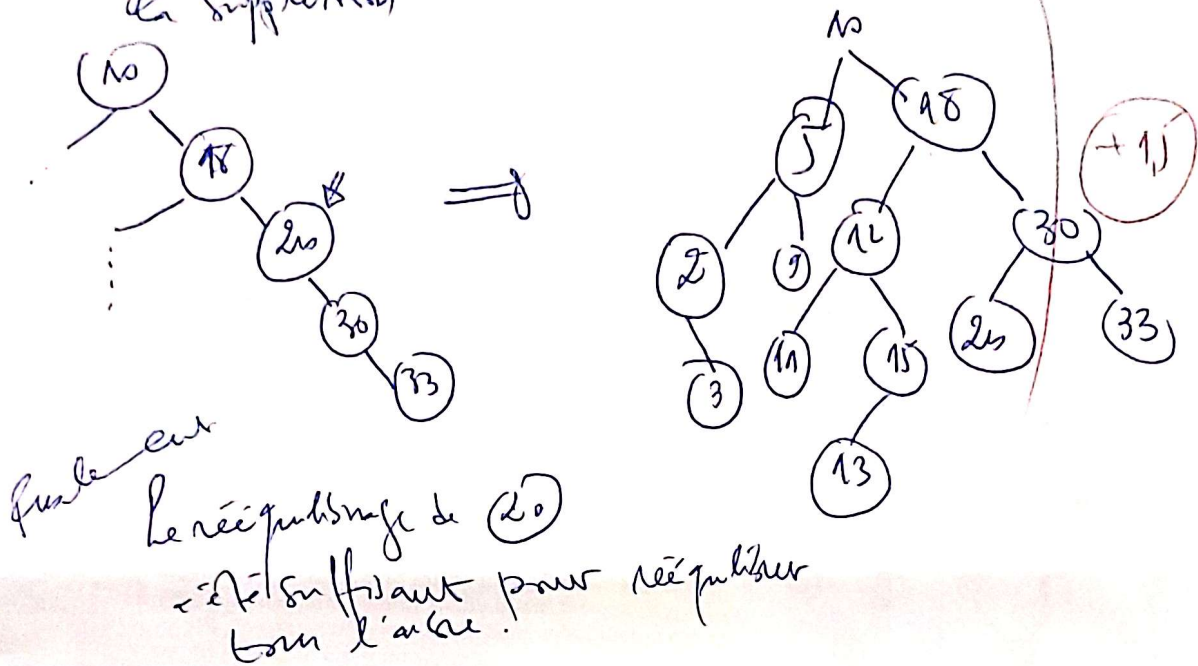 la suppression
10
10
18
+ 1,5
5
18
20
30
12
2
9
30
20
33
11
15
33
3
13
finalement
Le rééquilibrage de 20
a été suffisant pour rééquilibrer
tout l'arbre.